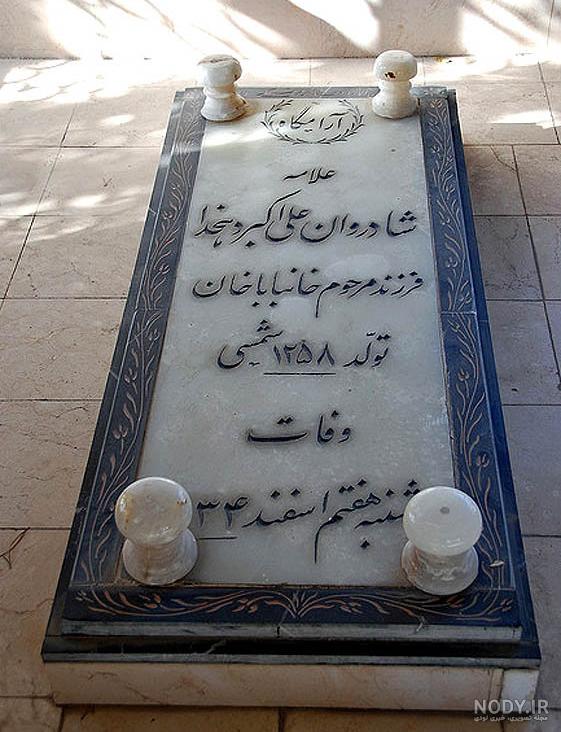 آرامگاه
علامه
شادروان علی اکبر دهخدا
فرزند مرحوم خانبابا خان
تولّد ۱۲۵۸ شمسی
وفات
شنبه هفتم اسفند ۳۴
NODY.IR
مجله تصویری، خبری نودی